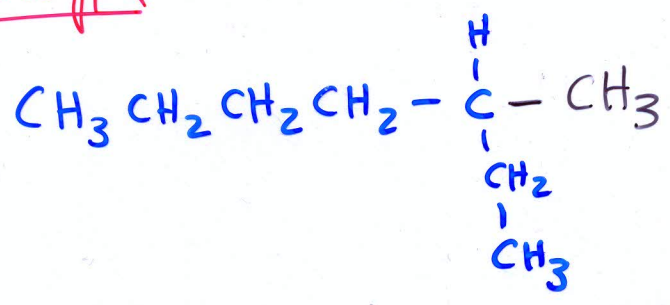 H
CH₃ CH₂ CH₂ CH₂ – C – CH₃
CH₂
CH₃